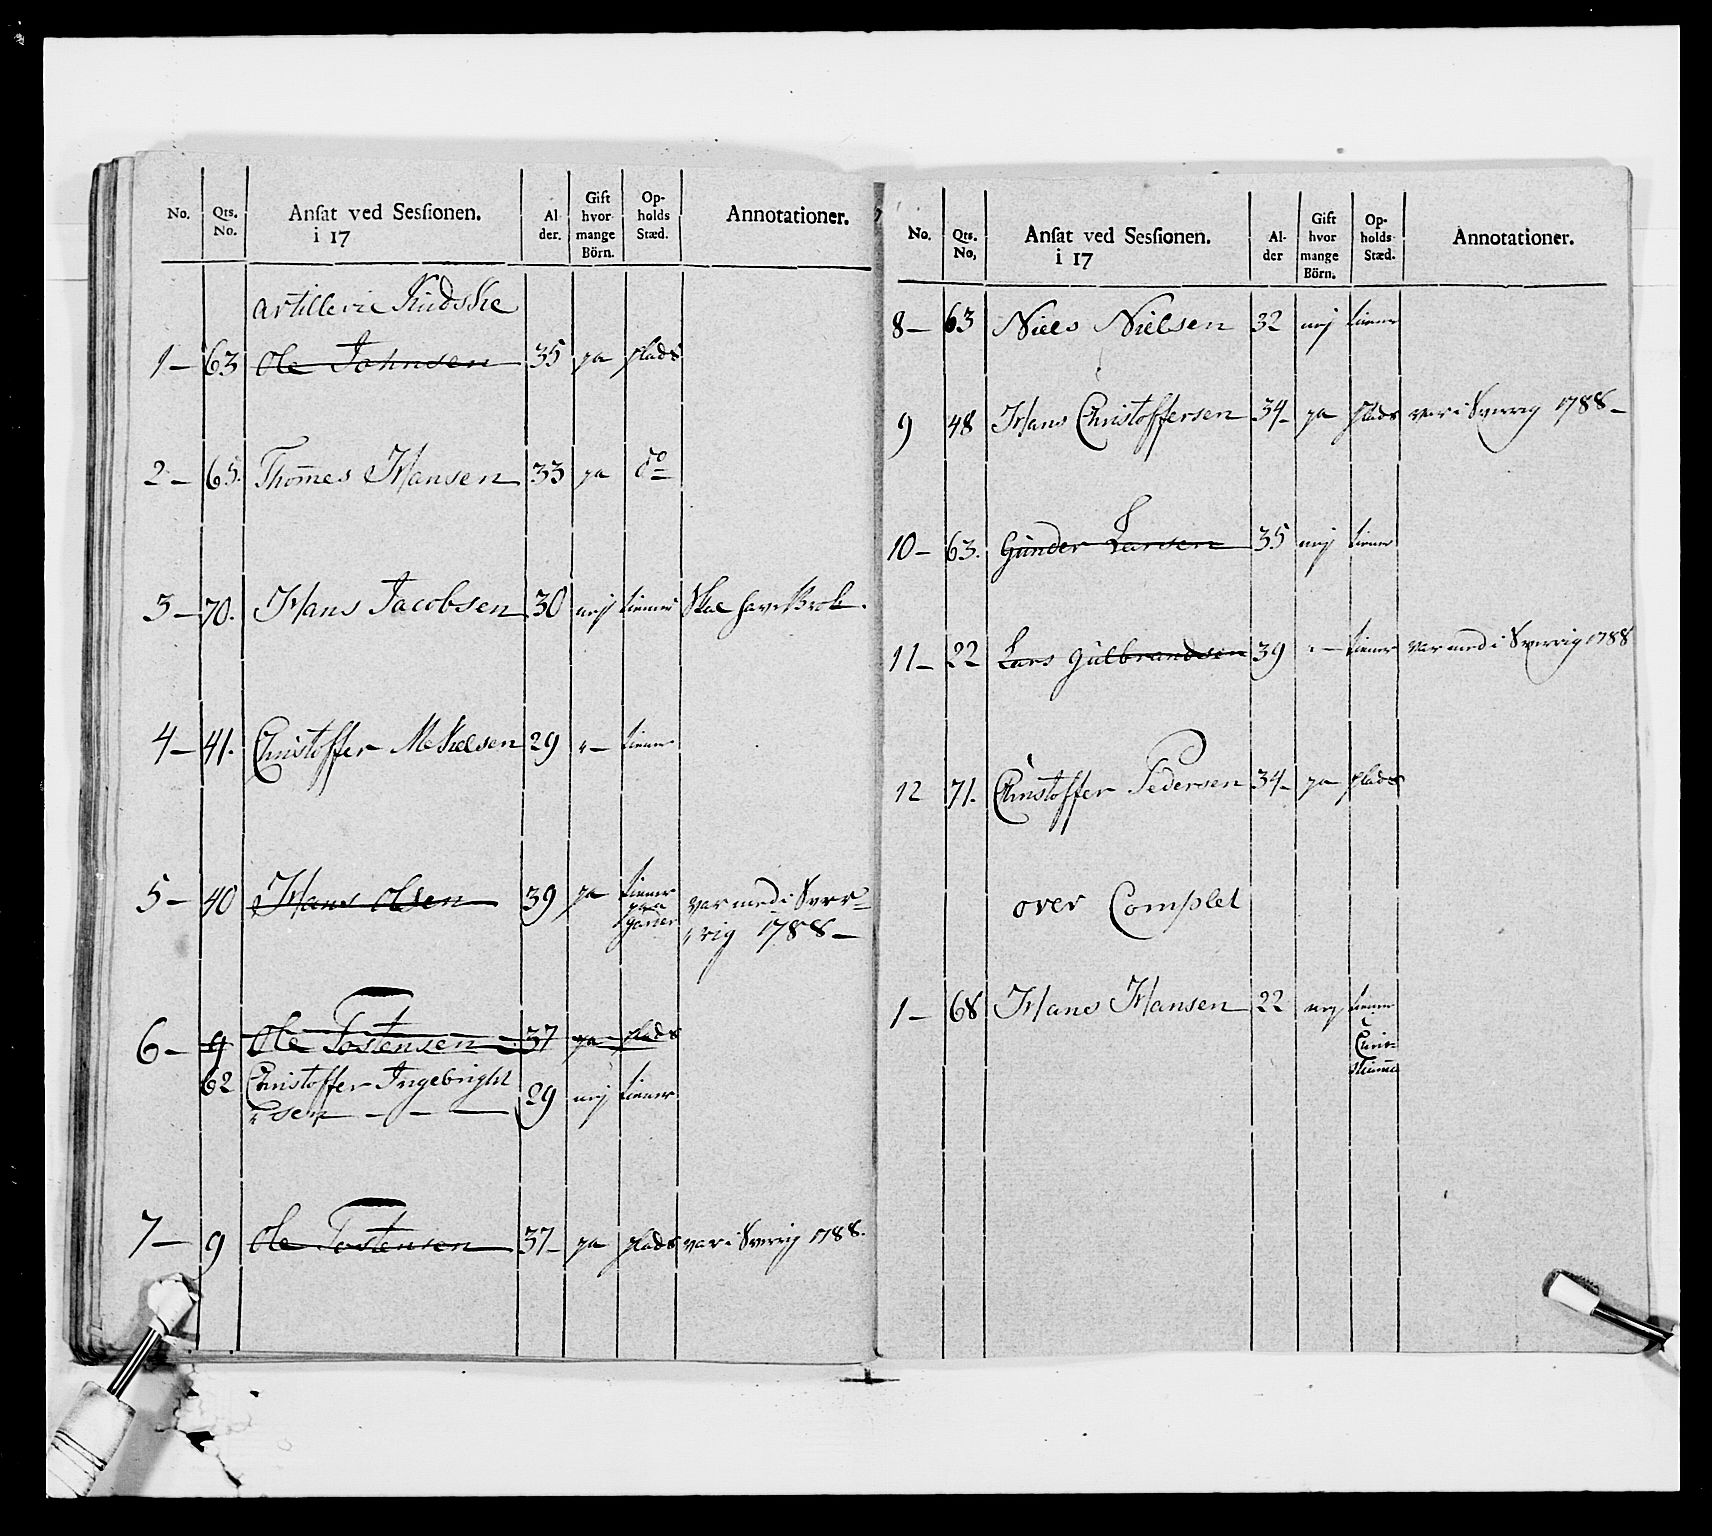 No. Qts. No. Ansat ved Sessionen. i 17 Al- der. Gift hvor- mange Börn. Op- holds Stæd. Annotationer.
Artillerie Kudske
1 – 63 Ole Johnsen 35 ja plads
2 – 65. Thom̄es Hansen 33 ja do
3 – 70. Hans Jacobsen 30 nej tiener Skal have Brok.
4 – 41. Christoffer Mekelsen 29 " – tiener
5 – 40 Hans Olsen 39 ja tiener
paa
gaarder
var med i Sver=
"rig 1788 –
6 – 9 Ole Tostensen 37 ja plads
62 Christoffer Ingebright
"sen – – – 29 nej tiener
7 – 9 Ole Tostensen 37 – ja plads var i Sverrig 1788.
No. Qts. No, Ansat ved Sessionen. i 17 Al- der Gift hvor mange Börn. Op- holds- Stæd. Annotationer.
8 – 63 Niels Nielsen 32 nej tiener
9 48 Hans Christoffersen 34 – ja plads var i Sverrig 1788 –
10 – 63. Gunder Larsen 35 nej tiener
11 – 22 Lars Gulbrandsen 39 " – tiener var med i Sverrig 1788
12 71. Christoffer Pedersen 34 – ja plads
over Complet
1 – 68 Hans Hansen 22 nej tiener